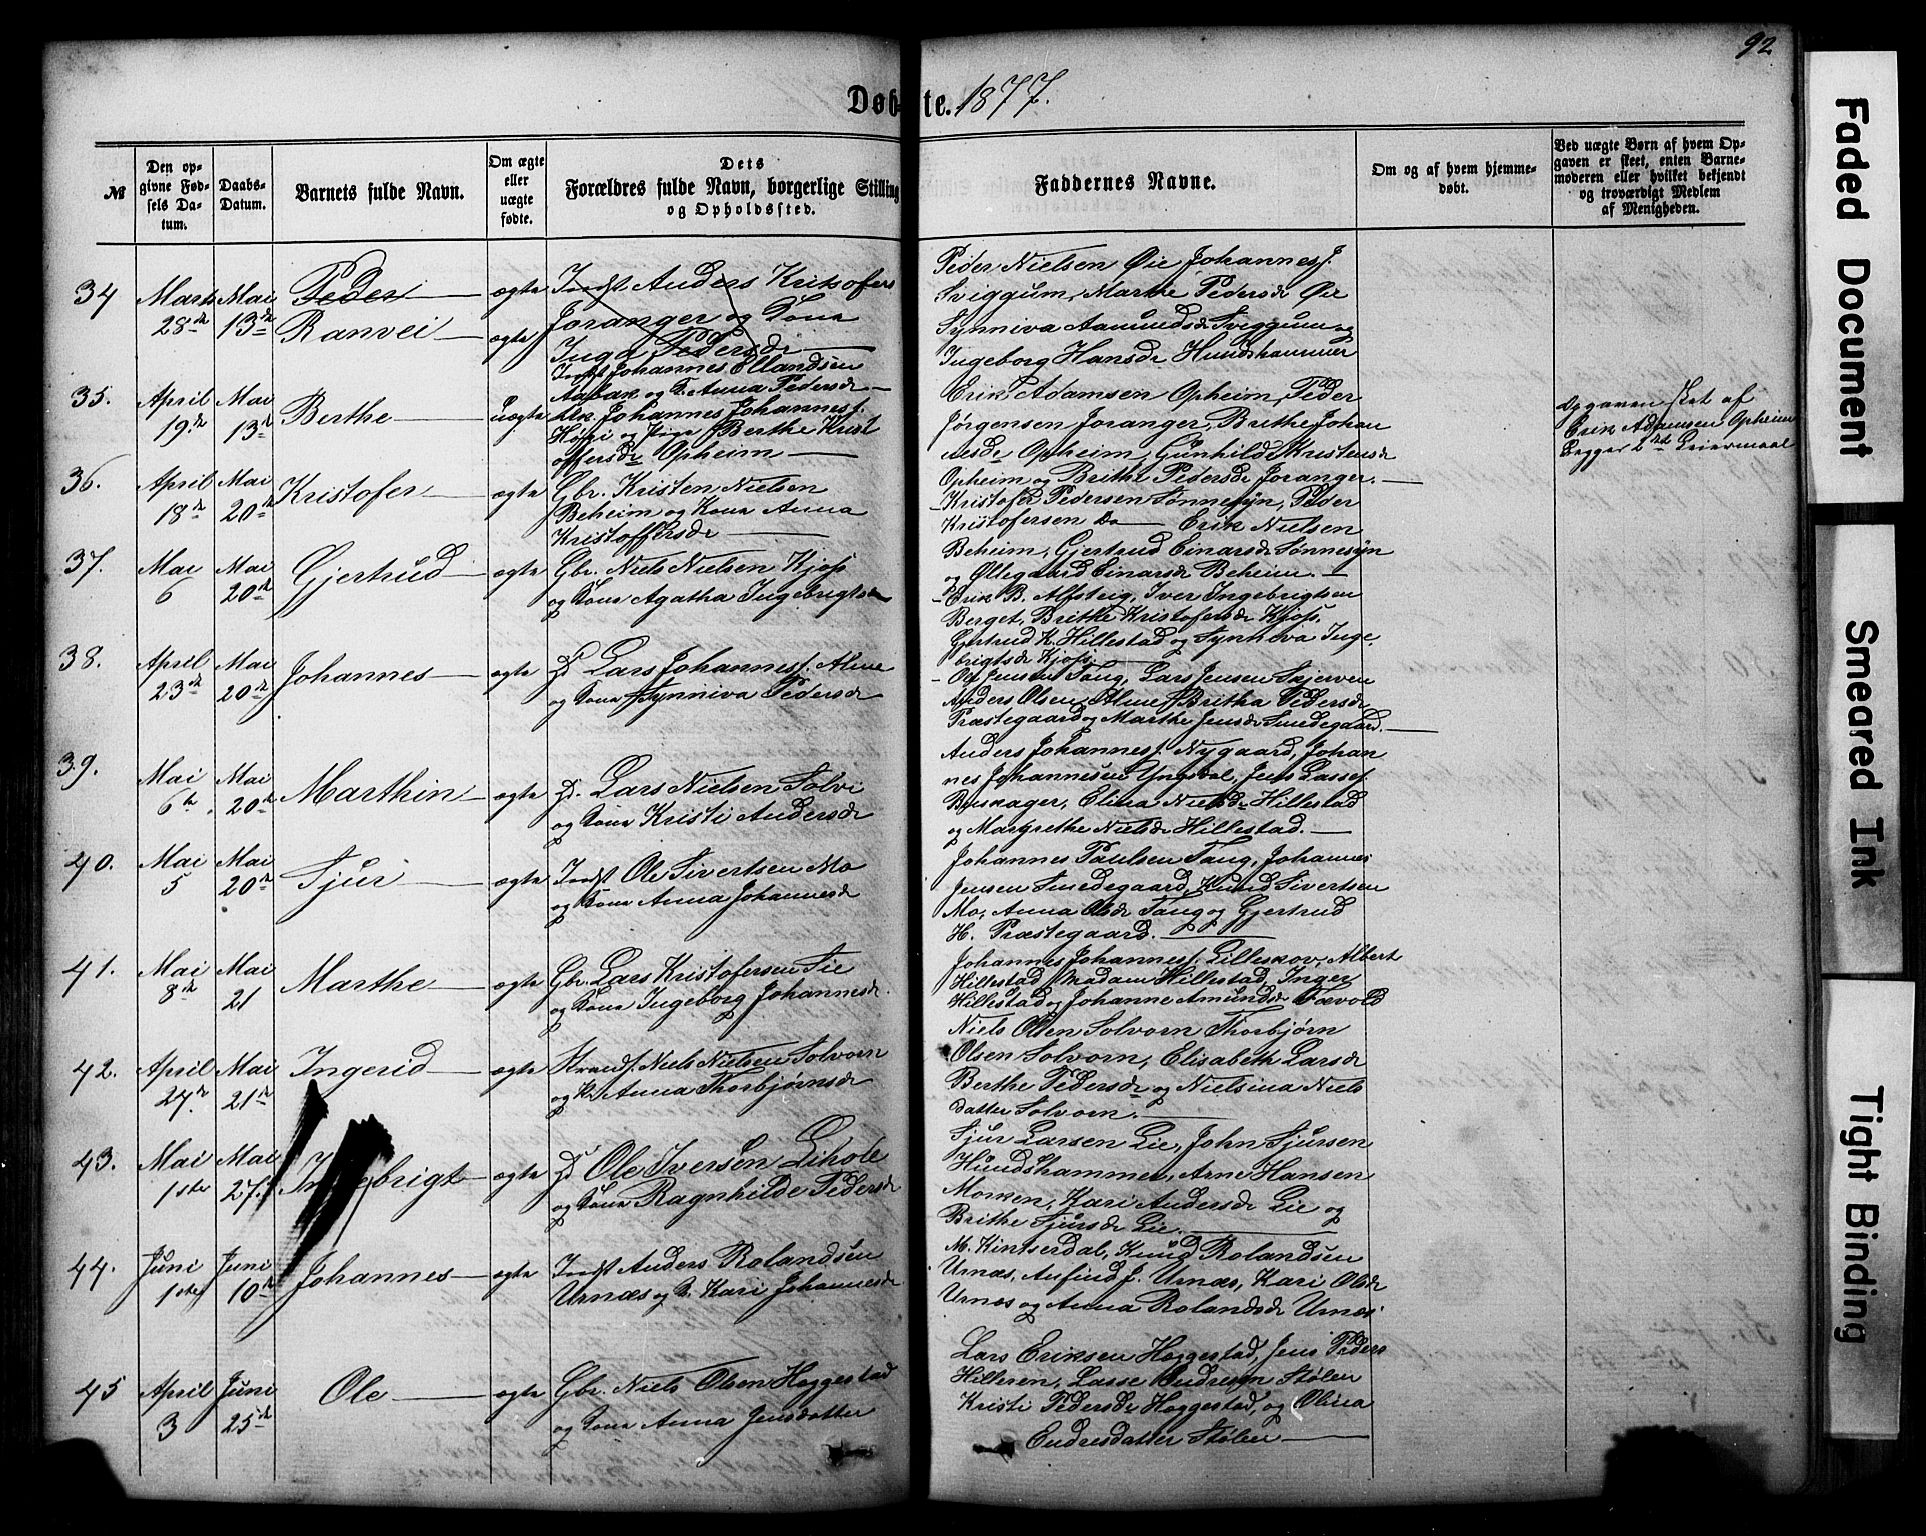 92
Døbte. 1877.
№
Den opgivne Fødsels Datum.
Daabs-Datum.
Barnets fulde Navn.
Om ægte eller uægte fødte.
Dets Forældres fulde Navn, borgerlige Stilling og Opholdssted.
Faddernes Navne.
Om og af hvem hjemmedøbt.
Ved uægte Børn af hvem Opgaven er skeet, enten Barnemoderen eller hvilket bekjendt og troværdigt Medlem af Menigheden.
34 Marts 28de Mai 13de
Peder ægte Indst Anders Kritsofers
Joranger og Kona
Inga Pedersdr
Ranvei ægte Indst Johannes Ellandsen
Aabak og K. Anna Pedersdr
Peder Nielsen Øie Johannes J.
Sviggum, Marthe Pedersdr Øie
Synniva Aamundsdr Sviggum og
Ingeborg Hansdr Hundshammer
35. April 19de Mai 13de Berthe uægte
Ulk. Johannes Johannesf.
Høgi og Pige Berthe Krist
offersdr Opheim
Erik Adamsen Opheim, Peder
Jørgensen Joranger, Brithe Johan
nesdr Opheim, Gunhild Kristensdr
Opheim og Brithe Pedersdr Joranger.
Opgaven sket af
Erik Adamsen Opheim
Begges 2det Leiermaal
36. April 18de Mai 20de Kristofer ægte
Gbr. Kristen Nielsen
Beheim og Kona Anna
Kristoffersdr
Kristofer Pedersen Sønnesyn, Peder
Kristofersen Do Erik Nielsen
Beheim, Gjertrud Einarsdr Sønnesyn
og Øllegaard Einarsdr Beheim.
37. Mai 6 Mai 20de Gjertrud ægte
Gbr. Niels Nielsen Kjoss
og Kona Agatha Ingebrigtsdr
Erik B. Alfsteig, Iver Ingebrigtsen
Berget, Brithe Kristofersdr Kjoss,
Gjertrud K. Hillestad og Synniva Inge
brigtsdr Kjoss
38. April 23de Mai 20de Johannes ægte
Gd Lars Johannesf. Alme
og Kona Synniva Pedersdr
Ole Jensen Tang, Lars Jensen Skjerven
Anders Olsen Alme Britha Pedersdr
Præstegaard og Marthe Jensdr Smedegaard.
39. Mai 6te Mai 20de Marthin ægte
Gd. Lars Nielsen Solvi
og Kona Kristi Andersdr
Anders Johannesf. Nygaard, Johan
nes Johannesen Yngsdal, Jens Lassef.
Buskager, Elina Nielsdr Hillestad
og Margrethe Nielsdr Hillestad.
40. Mai 5 Mai 20de Sjur ægte
Indst Ole Sivertsen Mo
og Kona Anna Johannesdr
Johannes Paulsen Tang, Johannes
Jensen Smedegaard, Knud Sivertsen
Mo, Anna Olsdr Tang og Gjertrud
H. Præstegaard.
41. Mai 8de Mai 21 Marthe ægte
Gbr. Lars Kristofersen Sie
og Kona Ingeborg Johannesdr
Johannes Johannesf. Lilleskov, Albert
Hillestad Madam Hillestad, Inger
Hillestad og Johanne Amundsdr Fævold
42. April 27de Mai 21de Ingerid ægte
Strands. Niels Nielsen Solvorn
og K. Anna Thorbjørnsdr
Niels Olsen Solvorn Thorbjørn
Olsen Solvorn, Elisabeth Larsdr
Berthe Pedersdr og Nielsina Niels
datter Solvorn.
43. Mai 1ste Mai 27. Ingebrigt ægte
Gd Ole Iversen Lihole
og Kona Ragnhilde Pedersdr
Sjur Larsen Lie, John Sjursen
Hundshammer, Arne Hansen
Morken, Kari Andersdr Lie og
Brithe Sjursdr Lie.
44. Juni 1ste Juni 10de Johannes ægte
Indst Anders Rolandsen
Urnæs og K. Kari Johannesdr
M. Kinserdal, Knud Rolandsen
Urnæs, Anfind J. Urnæs, Kari Olsdr
Urnæs og Anna Rolandsdr Urnæs
45 April 3 Juni 25de Ole ægte
Gbr. Niels Olsen Hæggestad
og Kona Anna Jensdatter
Lars Eriksen Hæggestad, Jens Peders
Hilleren, Lasse Endresen Stølen
Kristi Pedersdr Hæggestad, og Olina
Endresdatter Stølen
Faded Document
Smeared Ink
Tight Binding